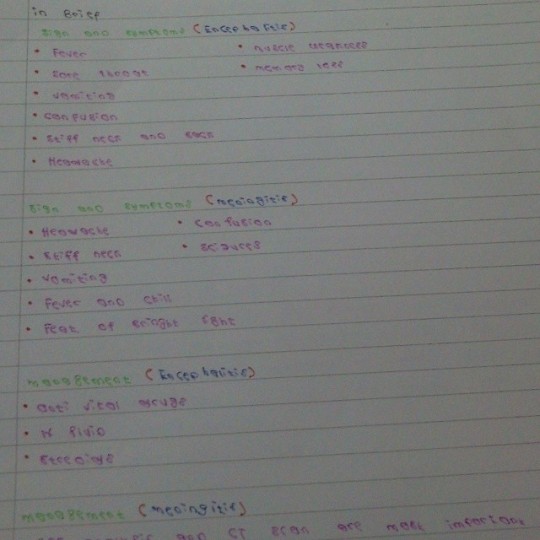 in Brief
sign and symptoms (Encephalitis)
• Fever • muscle weakness
• Sore throat • memory loss
• vomiting
• confusion
• stiff neck and back
• Headache
sign and symptoms (meningitis)
• Headache • confusion
• stiff neck • seizures
• vomiting
• fever and chill
• fear of bright light
management (Encephalitis)
• anti viral drugs
• IV fluid
• steroids
management (meningitis)
and CT scan are most important